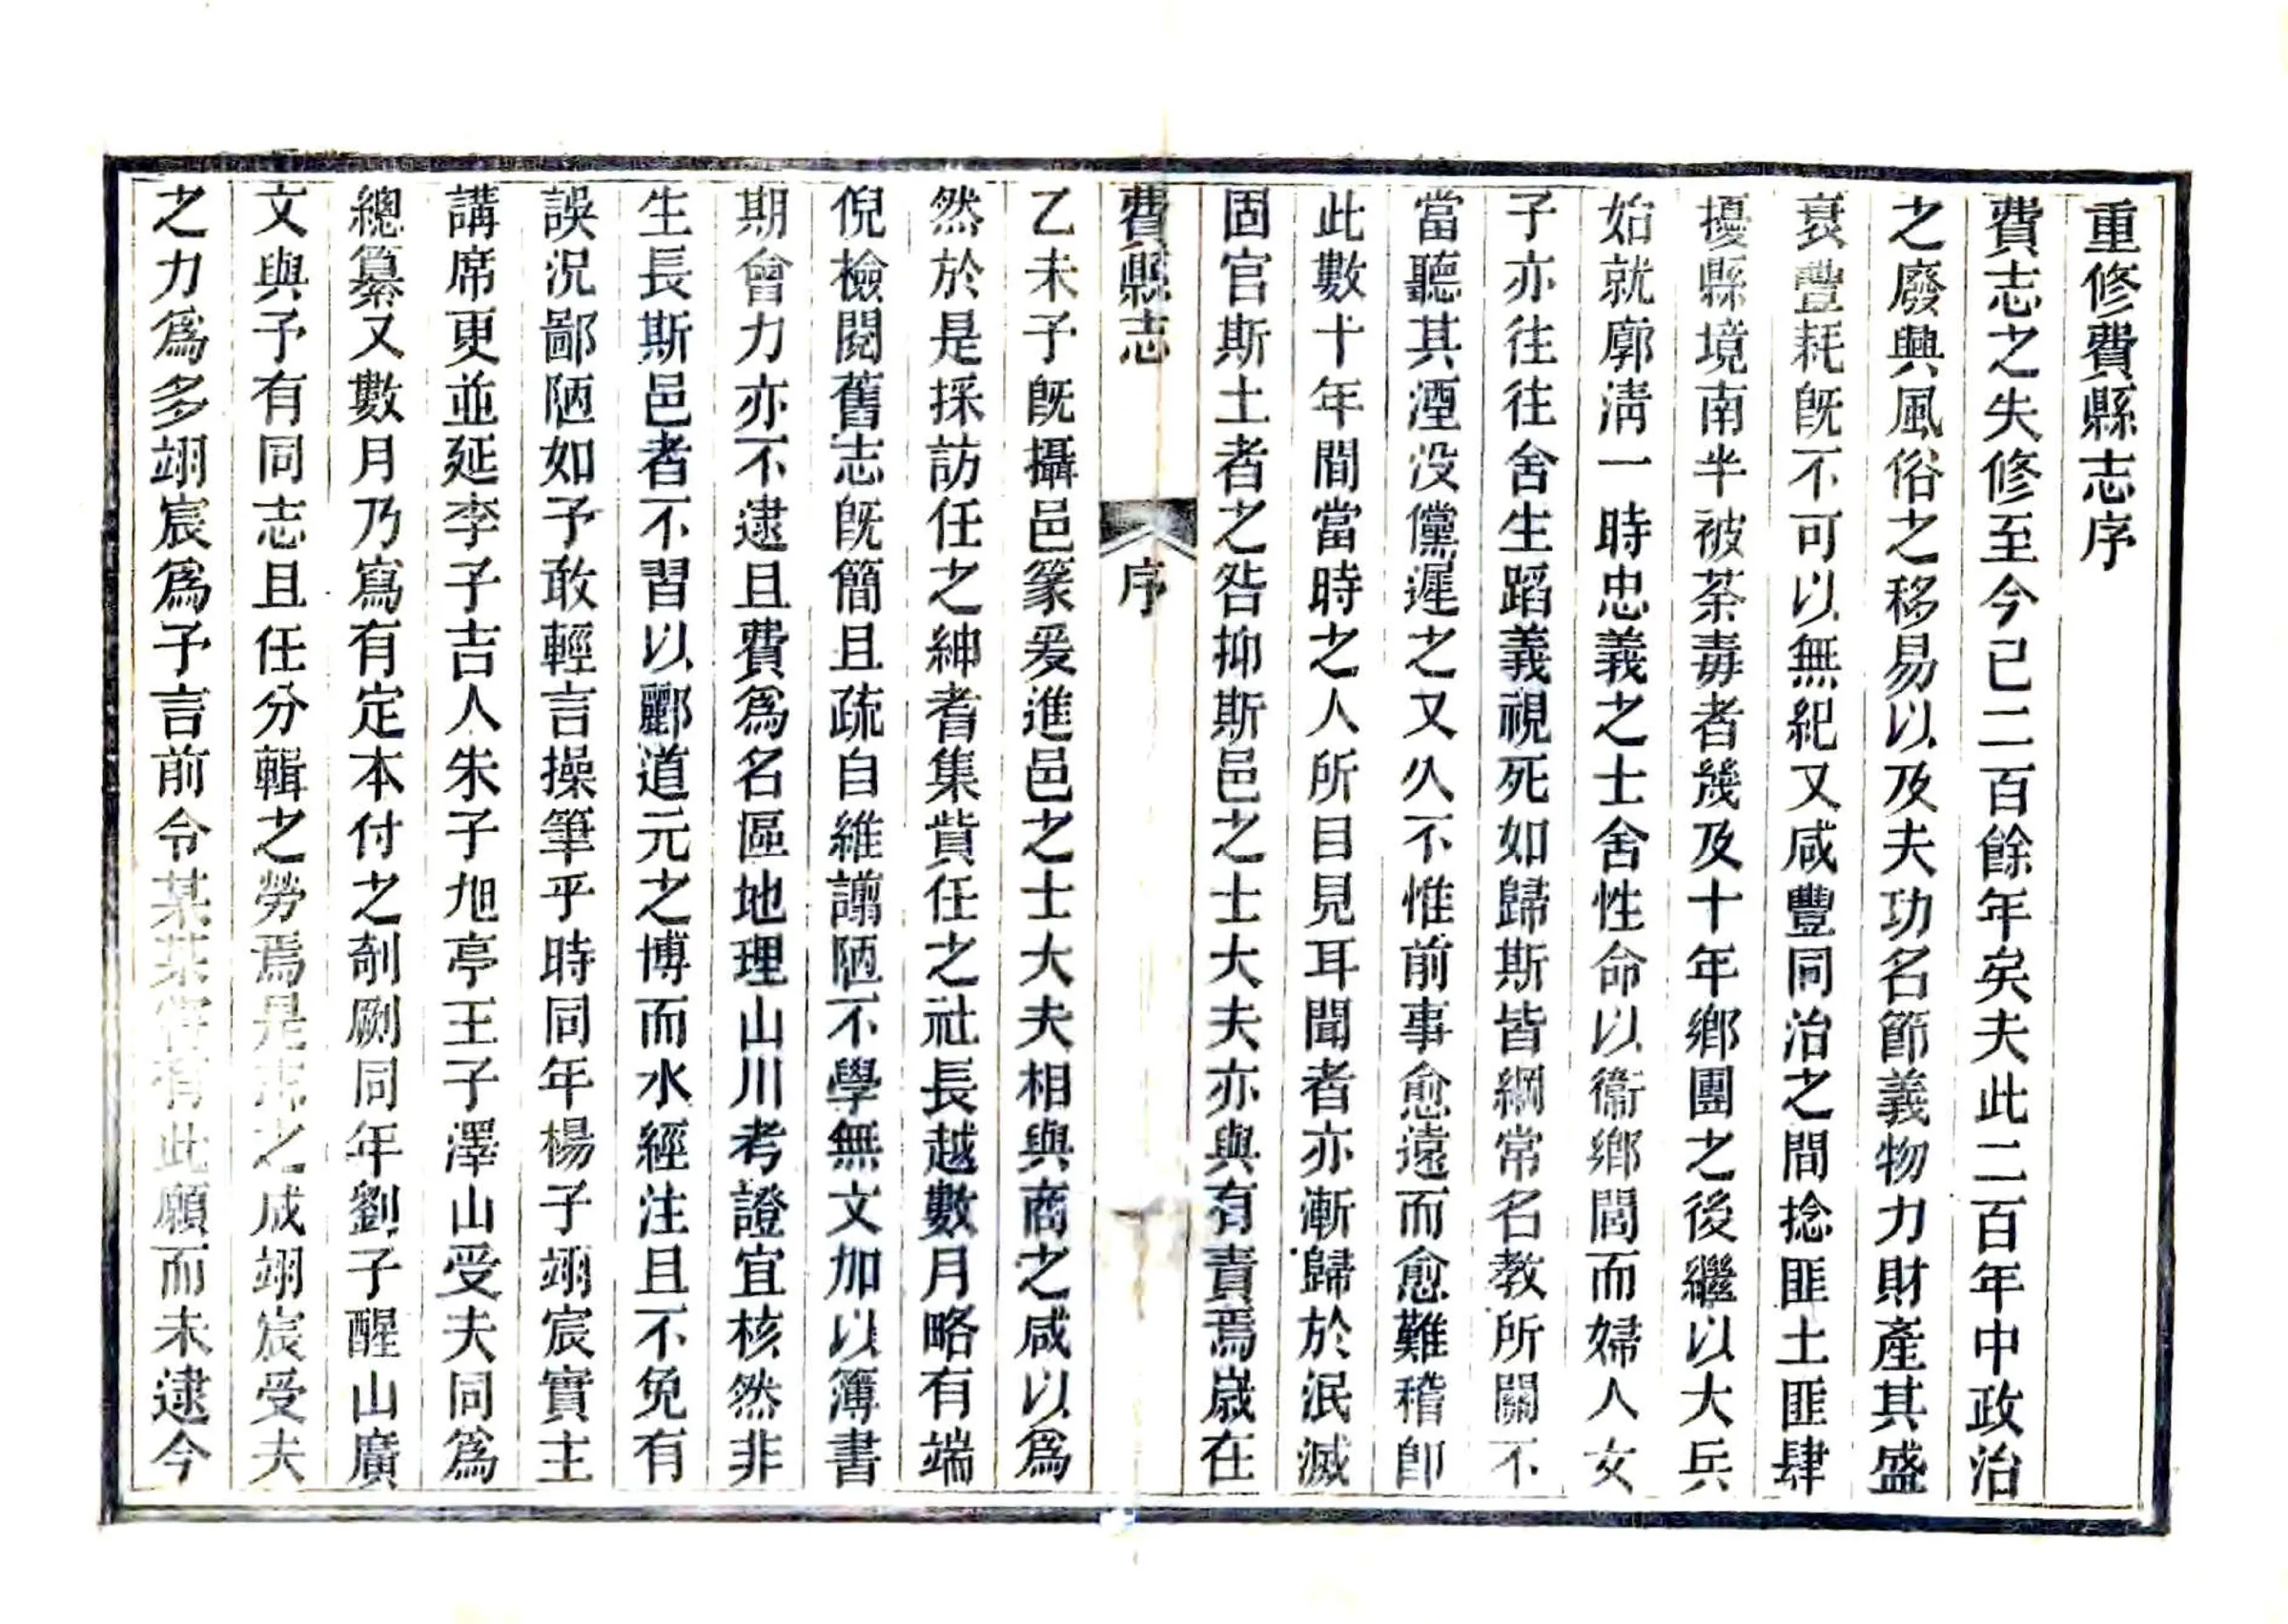 重修費縣志序
費志之失修至今已二百餘年矣夫此二百年中政治
之廢興風俗之移易以及夫功名節義物力財產其盛
衰豐耗旣不可以無紀又咸豐同治之間捻匪土匪肆
擾縣境南半被荼毒者幾及十年鄉團之後繼以大兵
始就廓淸一時忠義之士舍性命以衞鄉閭而婦人女
子亦往往舍生蹈義視死如歸斯皆綱常名教所關不
當聽其湮没儻遲之又久不惟前事愈遠而愈難稽卽
此數十年間當時之人所目見耳聞者亦漸歸於泯滅
固官斯土者之咎抑斯邑之士大夫亦與有責焉歲在
費縣志 序
乙未予旣攝邑篆爰進邑之士大夫相與商之咸以爲
然於是採訪任之紳耆集貲任之社長越數月略有端
倪檢閱舊志旣簡且疏自維譾陋不學無文加以簿書
期會力亦不逮且費爲名區地理山川考證宜核然非
生長斯邑者不習以酈道元之博而水經注且不免有
誤況鄙陋如予敢輕言操筆乎時同年楊子翊宸實主
講席更並延李子吉人朱子旭亭王子澤山受夫同爲
總纂又數月乃寫有定本付之剞劂同年劉子醒山廣
文與予有同志且任分輯之勞焉是志之成翊宸受夫
之力爲多翊宸爲予言前令某某皆有此願而未逮今